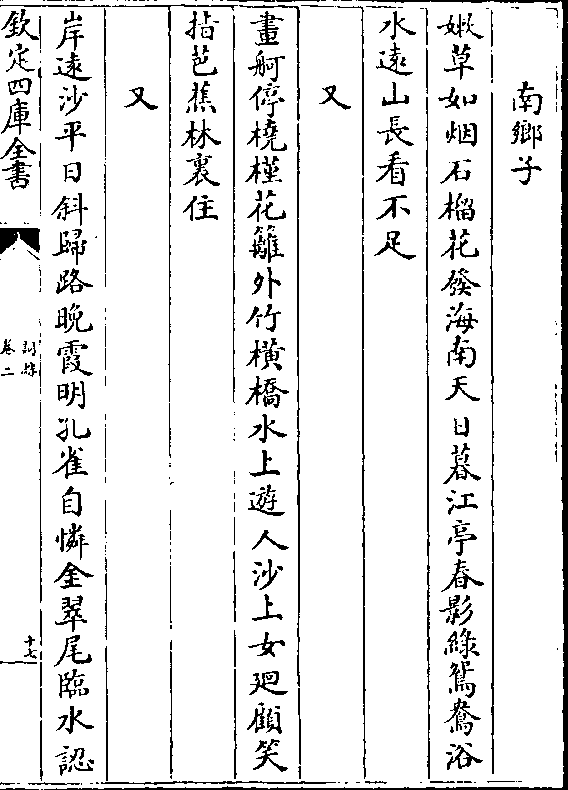 南鄉子
嫩草如烟石榴花發海南天日暮江亭春影綠鴛鴦浴
水逺山長看不足
又
畫舸停橈槿花籬外竹橫橋水上遊人沙上女廻顧笑
指芭蕉林裏住
又
岸逺沙平日斜歸路晚霞明孔雀自憐金翠尾臨水認
欽定四庫全書
詞綜
卷二
十七